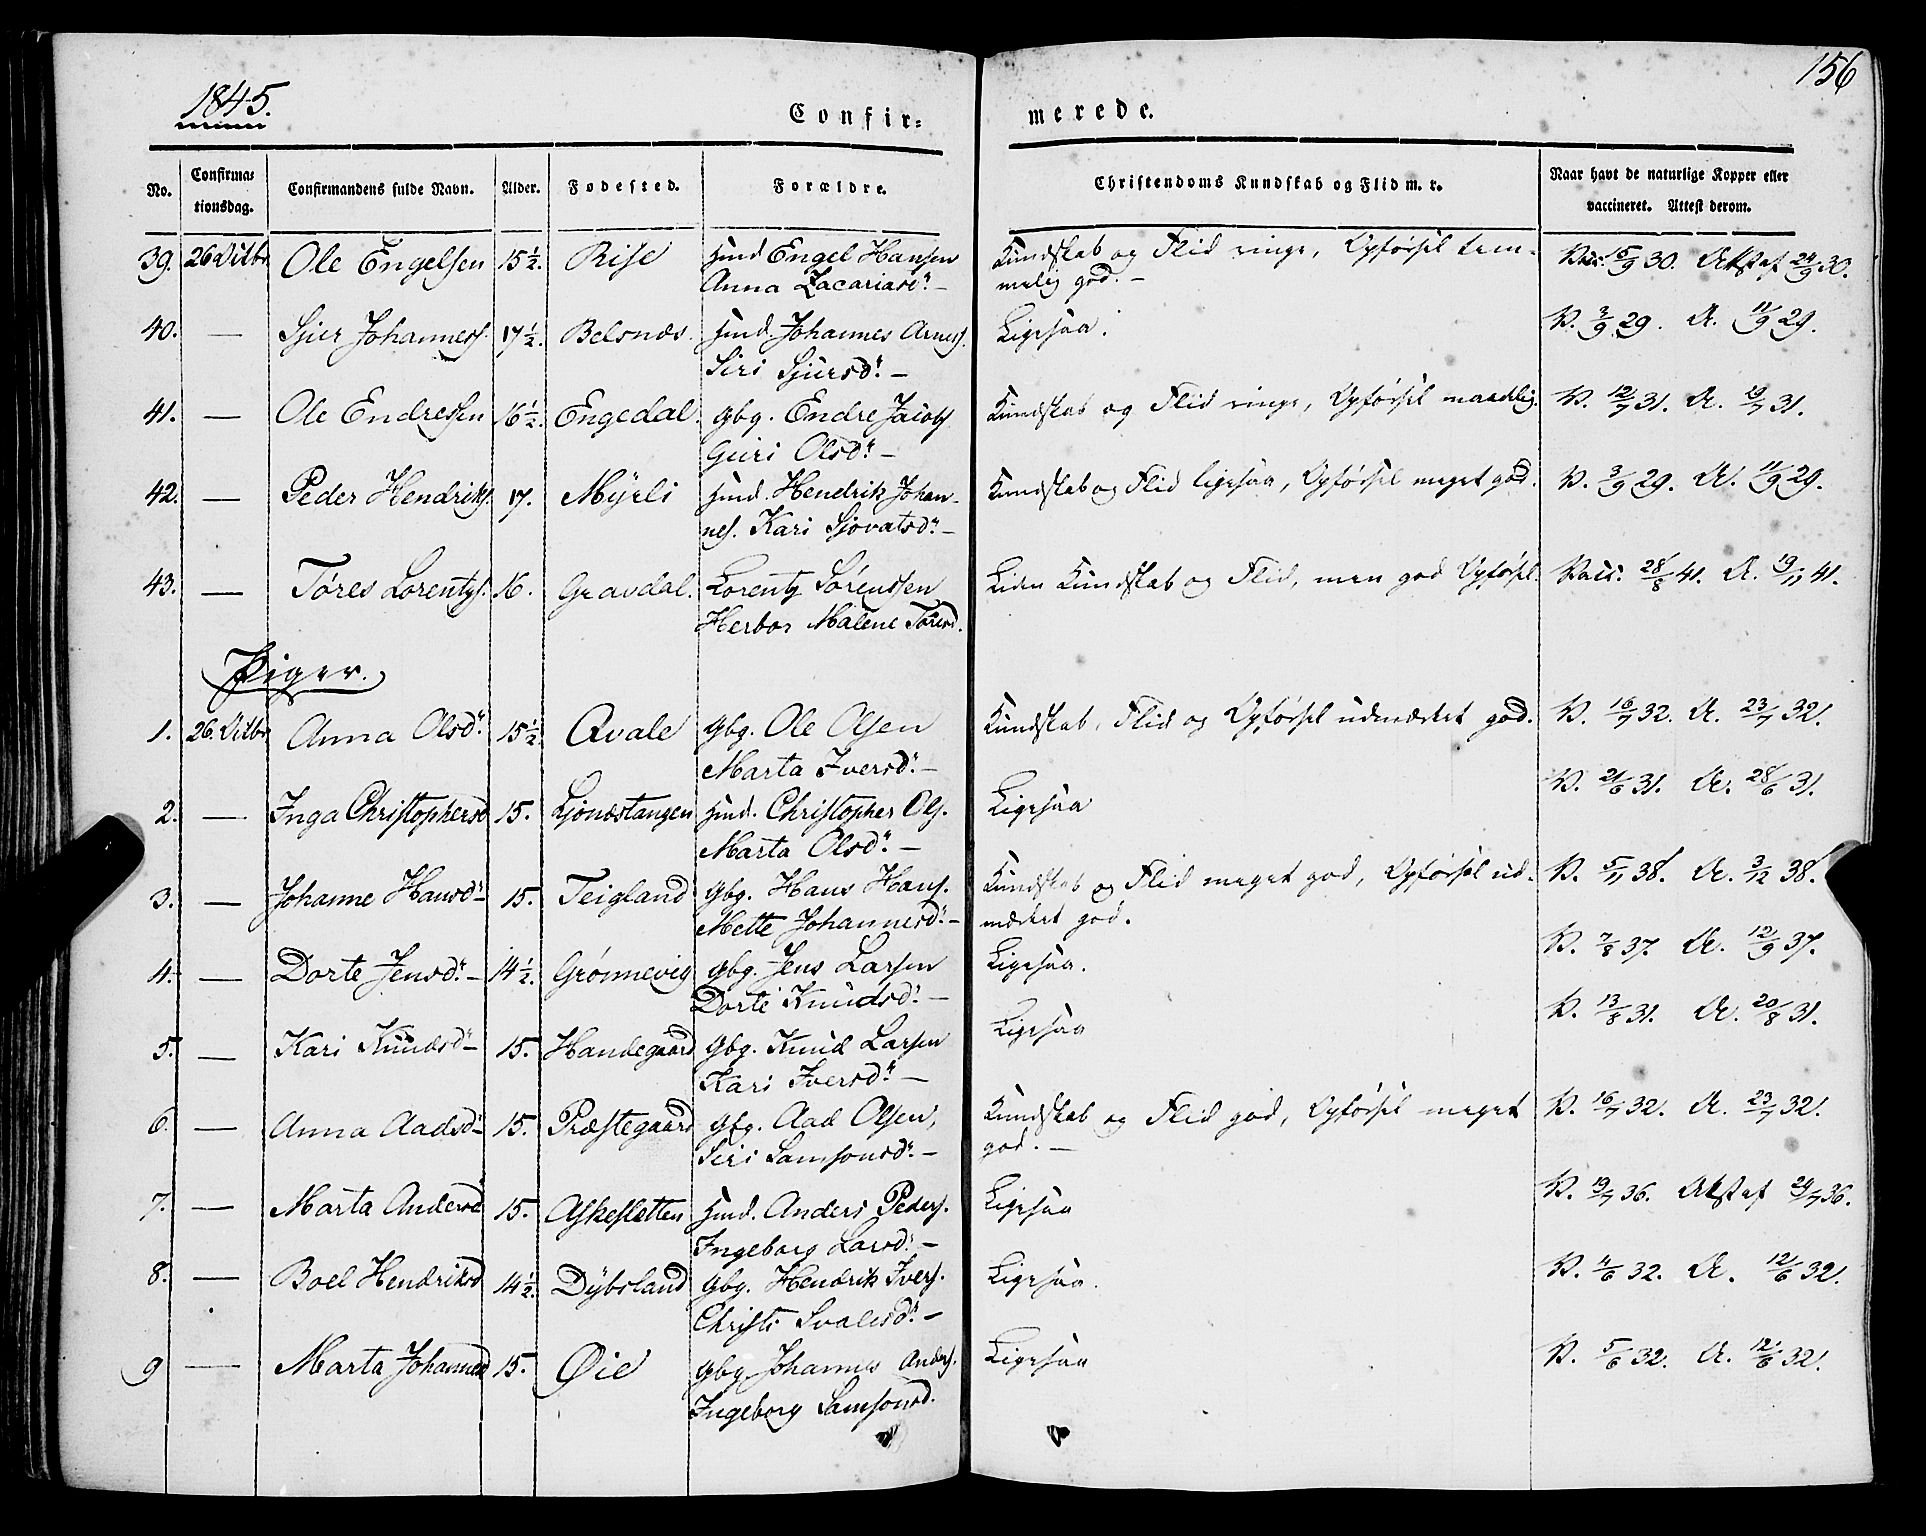 1845.
156
Confir=
merede.
No.
Confirma=
tionsdag.
Confirmandens fulde Navn.
Alder.
Fødested.
Forældre.
Christendoms Kundskab og Flid m. v.
Naar havt de naturlige Kopper eller
vaccineret. Attest derom.
39. 26 Octbr Ole Engelsen 15½. Rise Huusmd Engel Hansen Kundskab og Flid ringe, Opførsel tem-
Anna Zacariasd: – melig god. –
Vac. 15/9 30. Att. af 24/9 30.
40. — Sjur Johanness. 17½. Belsnæs. Huusmd. Johannes Arness. Ligesaa. V. 3/9 29. A. 11/9 29.
Siri Sjursd: –
41. — Ole Endressen 16½. Engedal. Gbg. Endre Jacobs. Kundskab og Flid ringe, Opførsel maadelig. V. 12/7 31. A. 19/7 31.
Guri Olsd: –
42. — Peder Hendriks. 17. Myrli Huusmd. Hendrik Johan- Kundskab og Flid ligesaa, Opførsel meget god. V. 3/9 29. A. 11/9 29.
nes. Kari Sjovatsd: –
43. — Tøres Lorentzs. 16. Gravdal. Lorentz Sørenssen Liden Kundskab og Flid, men god Opførsel. Vacc. 28/8 41. A. 19/11 41.
Herbor Malene Tøresd.
Piger.
1. 26. Octbr Anna Olsd: 15½. Qvale Gbg. Ole Olsen Kundskab, Flid og Opførsel udmærket god. V. 16/7 32. A. 23/7 32.
Marta Iversd: –
2. — Inga Christophersd 15. Ljonæstangen Huusmd. Christopher Ols. Ligesaa V. 21/6 31. A. 28/6 31.
Marta Olsd: –
3. — Johanne Hansd: 15. Teigland Gbg. Hans Hans. Kundskab og Flid meget god, Opførsel ud- V. 5/11 38. A. 3/12 38.
Mette Johannesd: – mærket god.
4. — Dorte Jensd: – 14½. Grønnevig Gbg. Jens Larsen Ligesaa. V. 7/8 37. A. 12/9 37.
Dorte Knudsd: –
5. — Kari Knudsd: 15. Handegaard Gbg. Knud Larsen Ligesaa V. 13/8 31. A. 20/8 31.
Kari Iversd: –
6. — Anna Aadsd: 15. Præstegaard Gbg. Aad Olsen, Kundskab og Flid god, Opførsel meget V. 16/7 32. A. 23/7 32.
Siri Samsonsd: – god. –
7. — Marta Andersd 15. Askesletten Huusmd. Anders Peders. Ligesaa V. 19/7 36. Att. af 24/7 36.
Ingeborg Larsd: –
8. — Boel Hendriksd 14½. Dybsland Gbg. Hendrik Ivers. Ligesaa. V. 4/6 32. A. 12/6 32.
Christi Svalesd: –
9 — Marta Johannesd 15. Øie Gbg Johannes Anders. Ligesaa V. 5/6 32. A. 12/6 32.
Ingeborg Samsonsd.